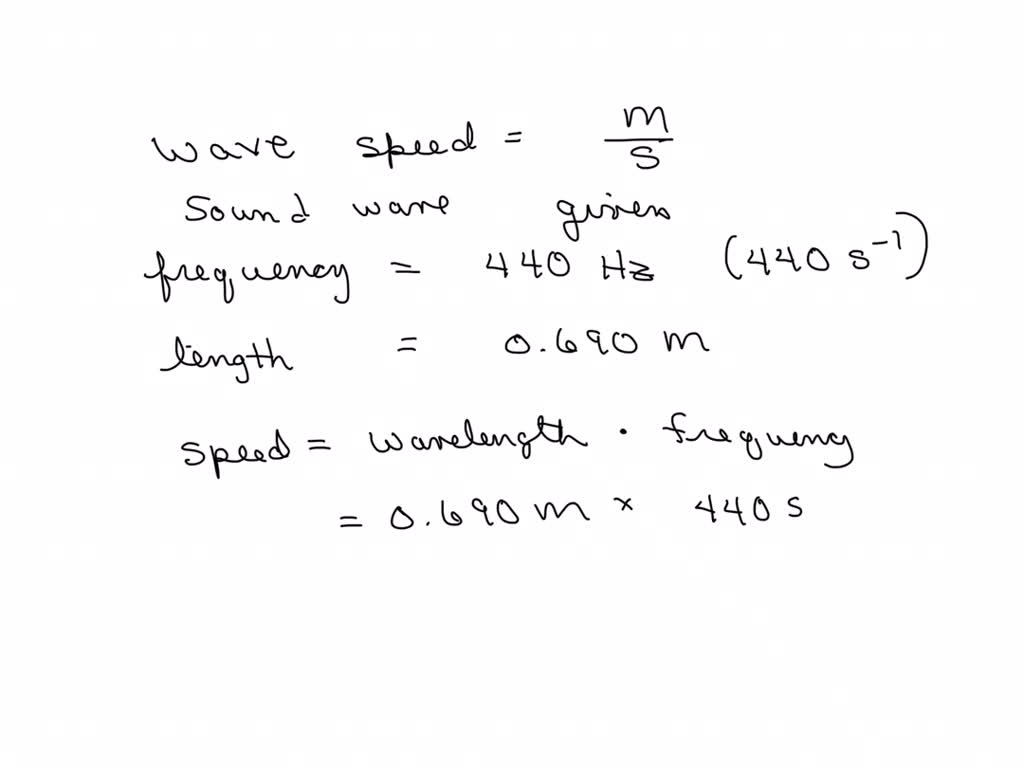 wave speed = m/s
Sound wave given
frequency = 440 Hz (440 s⁻¹)
length = 0.690 m
speed = wavelength · frequency
= 0.690 m × 440 s